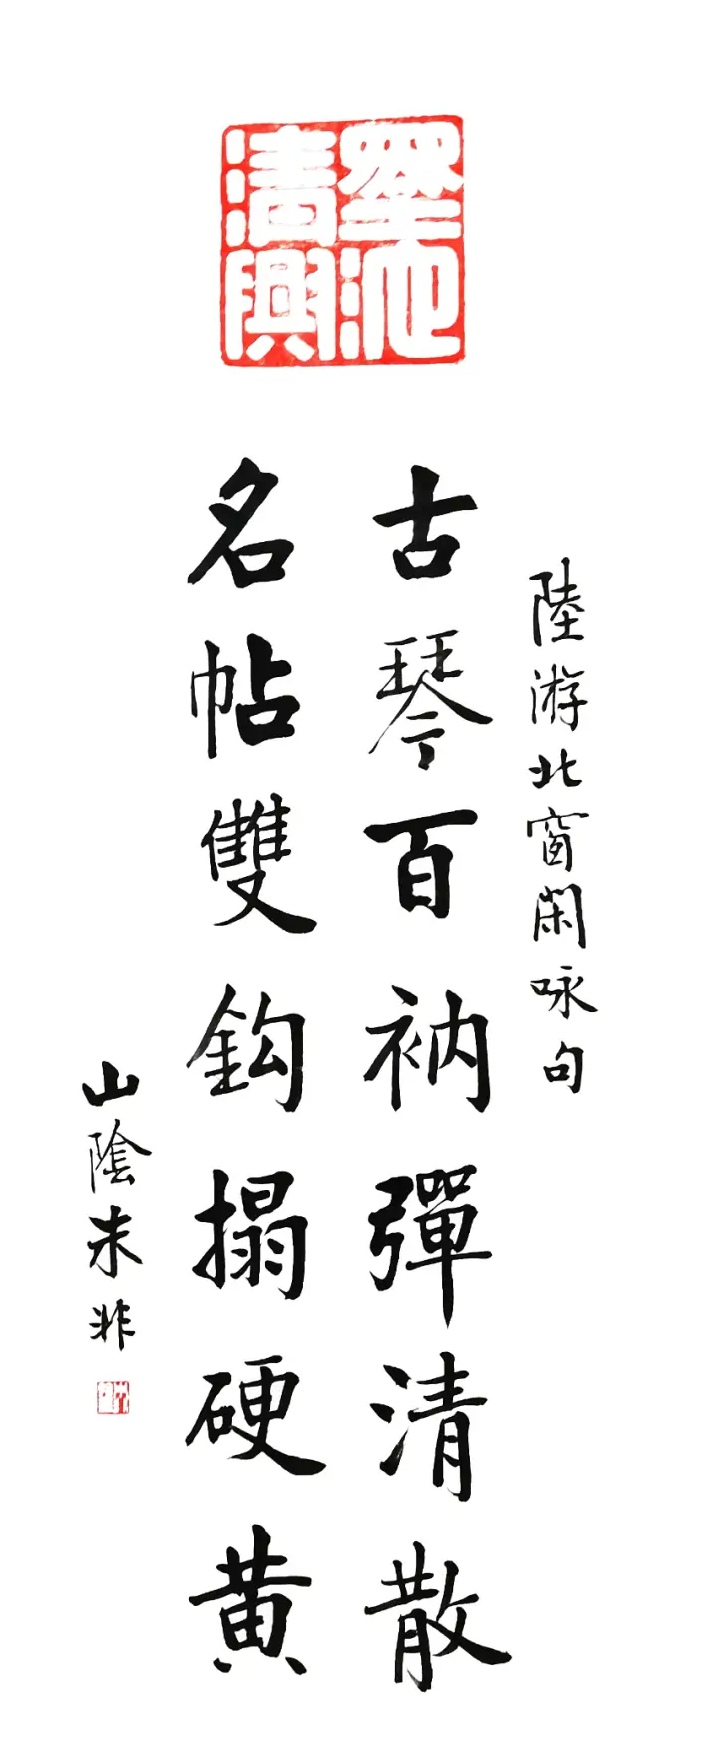 墨池清興
陸游北窗閑咏句
古琴百衲彈清散
名帖雙鈎搨硬黄
山陰朱非